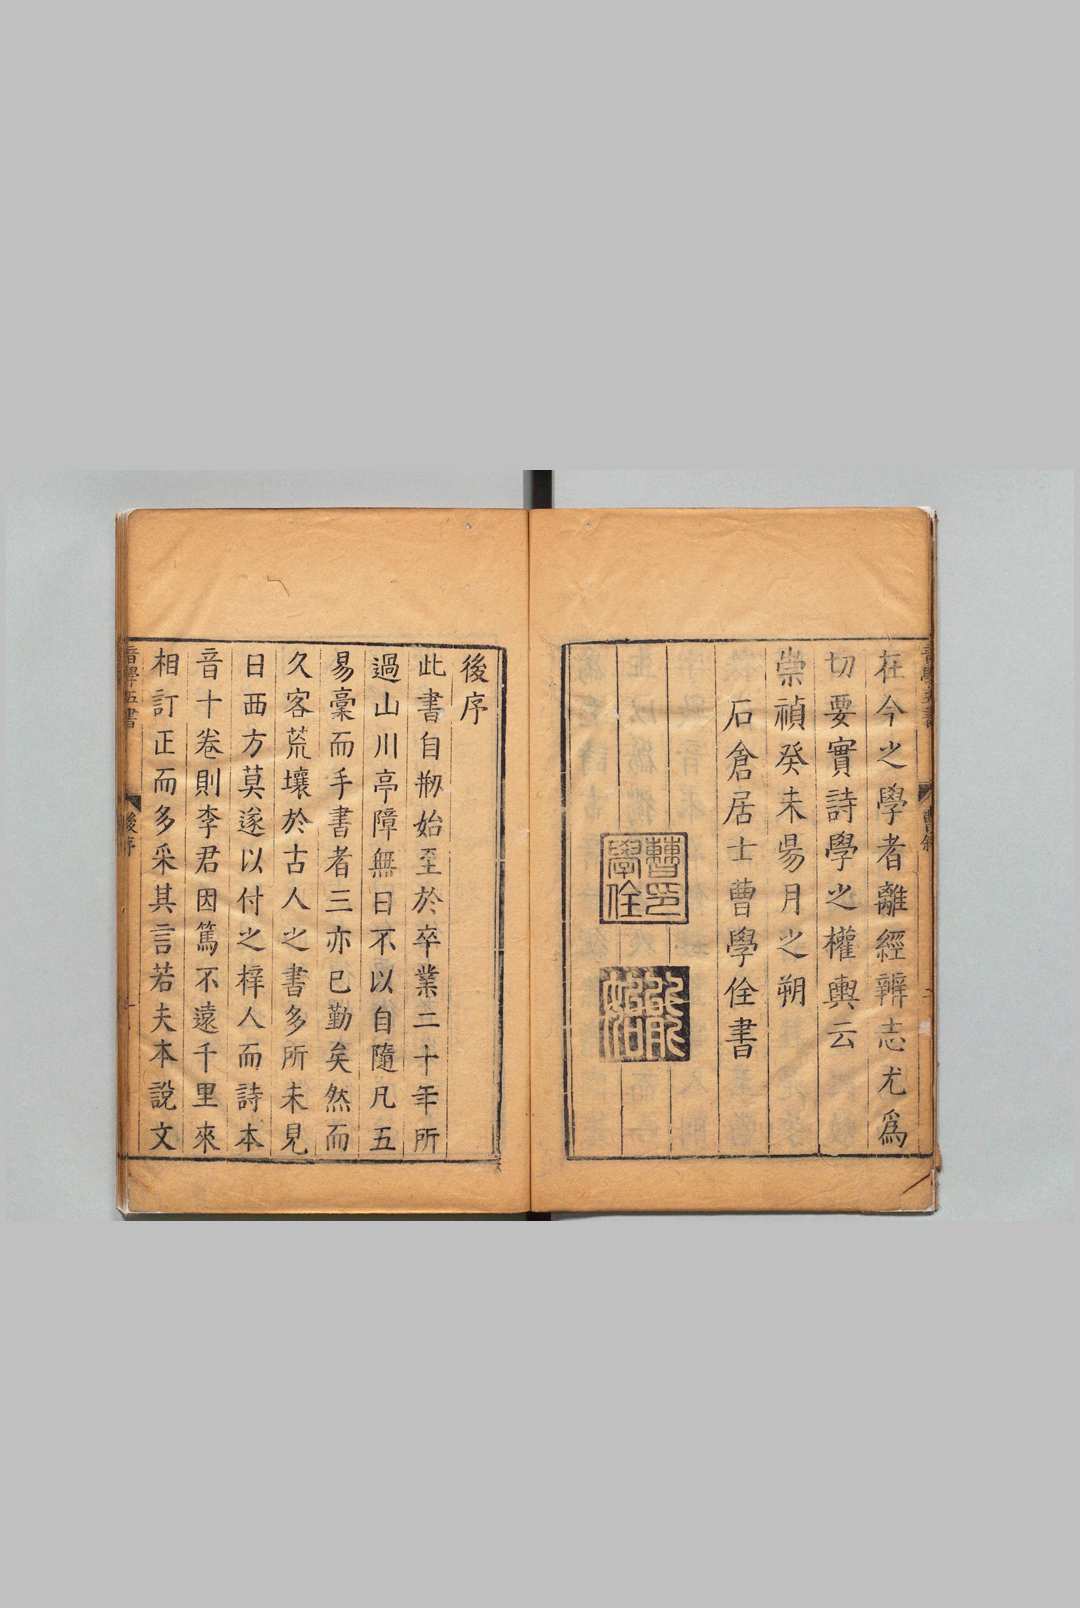 在今之學者離經辨志尤爲
切要實詩學之權輿云
崇禎癸未昜月之朔
石倉居士曹學佺書
曹印學佺
能始
音學五書
曹敘
後序
此書自刱始至於卒業二十年所
過山川亭障無日不以自隨凡五
易稾而手書者三亦已勤矣然而
久客荒壤於古人之書多所未見
日西方莫遂以付之梓人而詩本
音十卷則李君因篤不遠千里來
相訂正而多采其言若夫本說文
音學五書
後序
一